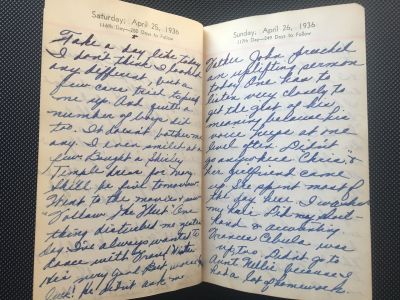 Saturday, April 25, 1936
116th Day—250 Days to Follow
Take a day like today
I don't think I looked
any different, but a
few cars tried to pick
me up. And quite a
number of boys did
too. It doesn't bother me
any. I even smiled at a
few. Bought a Shirley
Temple dress for Mary.
She'll be five tomorrow.
Went to the movies & saw
"Follow the Fleet" One
thing disturbed me yester
day I've always wanted to
dance with
He's very good. But
he didn't ask me
Sunday, April 26, 1936
117th Day—249 Days to Follow
Father John preached
an uplifting sermon
today. One has to
listen very closely to
get the gist of his
meaning because his
voice keeps at one
level often. Didn't
go anywhere. Chris &
her girlfriend came
up. She spent most of
the day here. I washed
my hair. Did my short-
hand & accounting
Frances Cebula was
up, too. Didn't go to
Aunt Nellie because I
had a lot of homework.